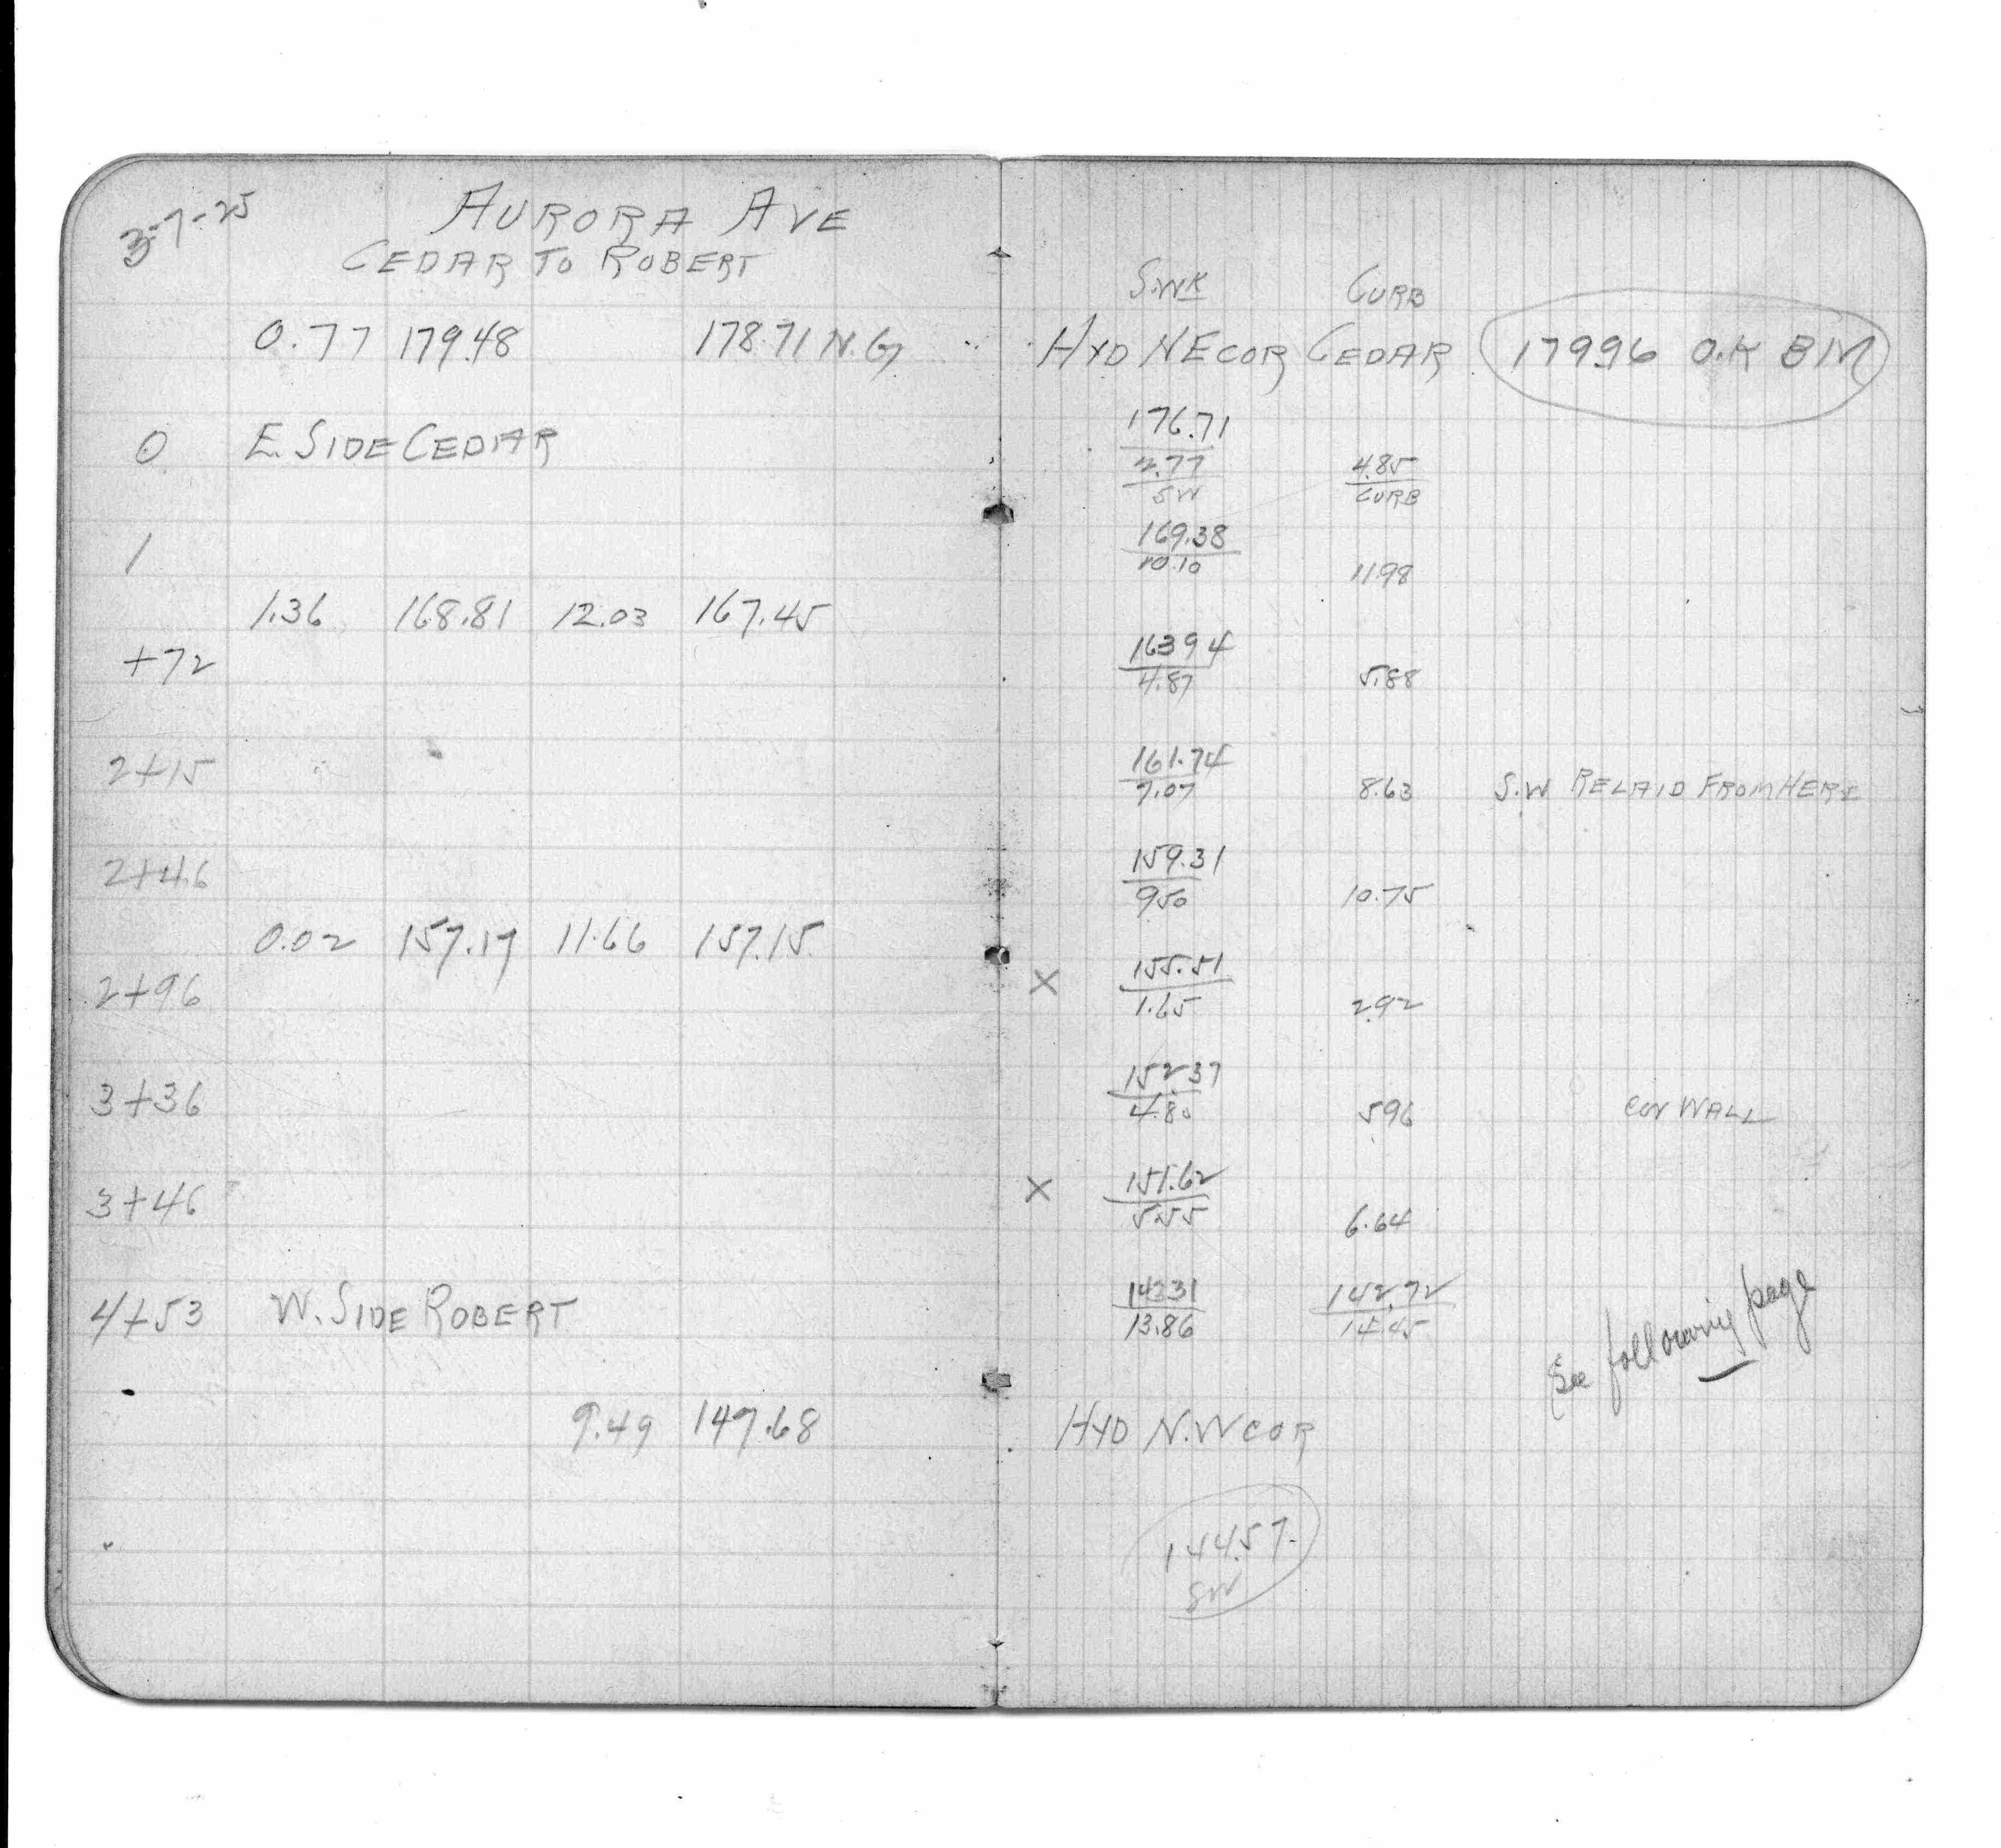 3-7-25
AURORA AVE
CEDAR TO ROBERT
0.77 179.48 178.71 N.G
0 E. SIDE CEDAR
1
1.36 168.81 12.03 167.45
+72
2+15
2+46
0.02 157.17 11.66 157.15
2+96
3+36
3+46
4+53 W. SIDE ROBERT
9.49 147.68
S.WK CURB
HYD NE COR CEDAR 179.96 O.K BM
176.71
2.77 4.85
SW CURB
169.38
10.10 11.98
163.94
4.87 5.88
161.74
7.07 8.63 S.W RELAID FROM HERE
159.31
9.50 10.75
X 155.51
1.65 2.92
152.37
4.80 5.96 COR WALL
X 151.62
5.55 6.64
143.31 142.72
13.86 14.45
See following page
HYD N.W COR
144.57.
SW